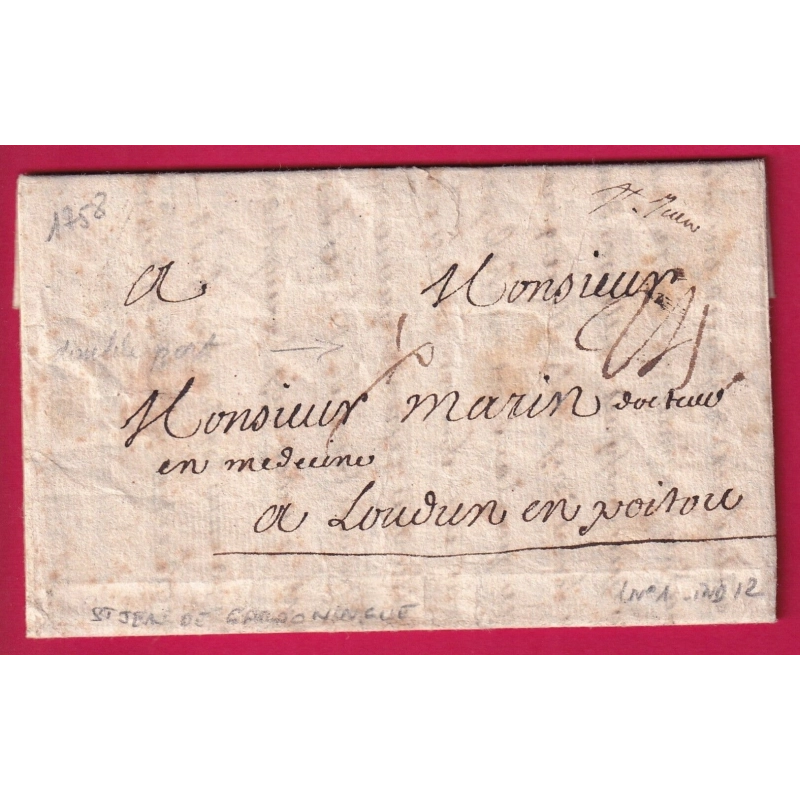 1758
St. Jean
a Monsieur
24
double port →
Monsieur marin docteur
en medecine
a Loudun en poitou
ST JEAN DE GARDONINQUE
(N°1 - IND 12